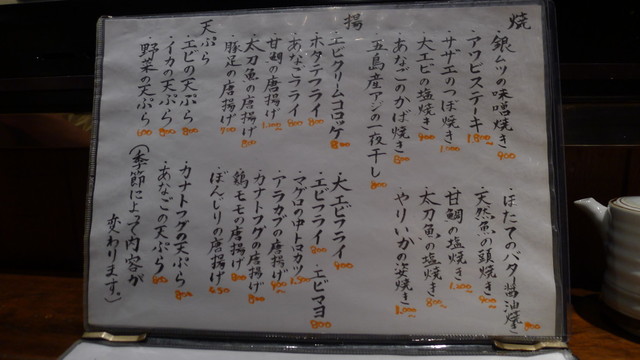 焼
・銀ムツの味噌焼き 900
・アワビステーキ 1,800〜
・サザエのつぼ焼き 1,000〜
・大エビの塩焼き 900
・あなごのかば焼き 800
・五島産アジの一夜干し 800
・ほたてのバタ醤油焼き 900
・天然魚の頭焼き 900〜
・甘鯛の塩焼き 1,200〜
・太刀魚の塩焼き 800〜
・やりいかの姿焼き 1,000〜
揚
・エビクリームコロッケ 800
・ホタテフライ 800
・あなごフライ 800
・甘鯛の唐揚げ 1,200〜
・太刀魚の唐揚げ 800
・豚足の唐揚げ 700
・大エビフライ 900
・エビフライ 800
・エビマヨ 800
・マグロの中トロカツ
・アラカブの唐揚げ 900〜
・カナトフグの唐揚げ 800
・鶏モモの唐揚げ 800
・ぼんじりの唐揚げ 650
天ぷら
・エビの天ぷら 800
・イカの天ぷら 800
・野菜の天ぷら 600
・カナトフグの天ぷら 800
・あなごの天ぷら 800
(季節によって内容が
変わります。)